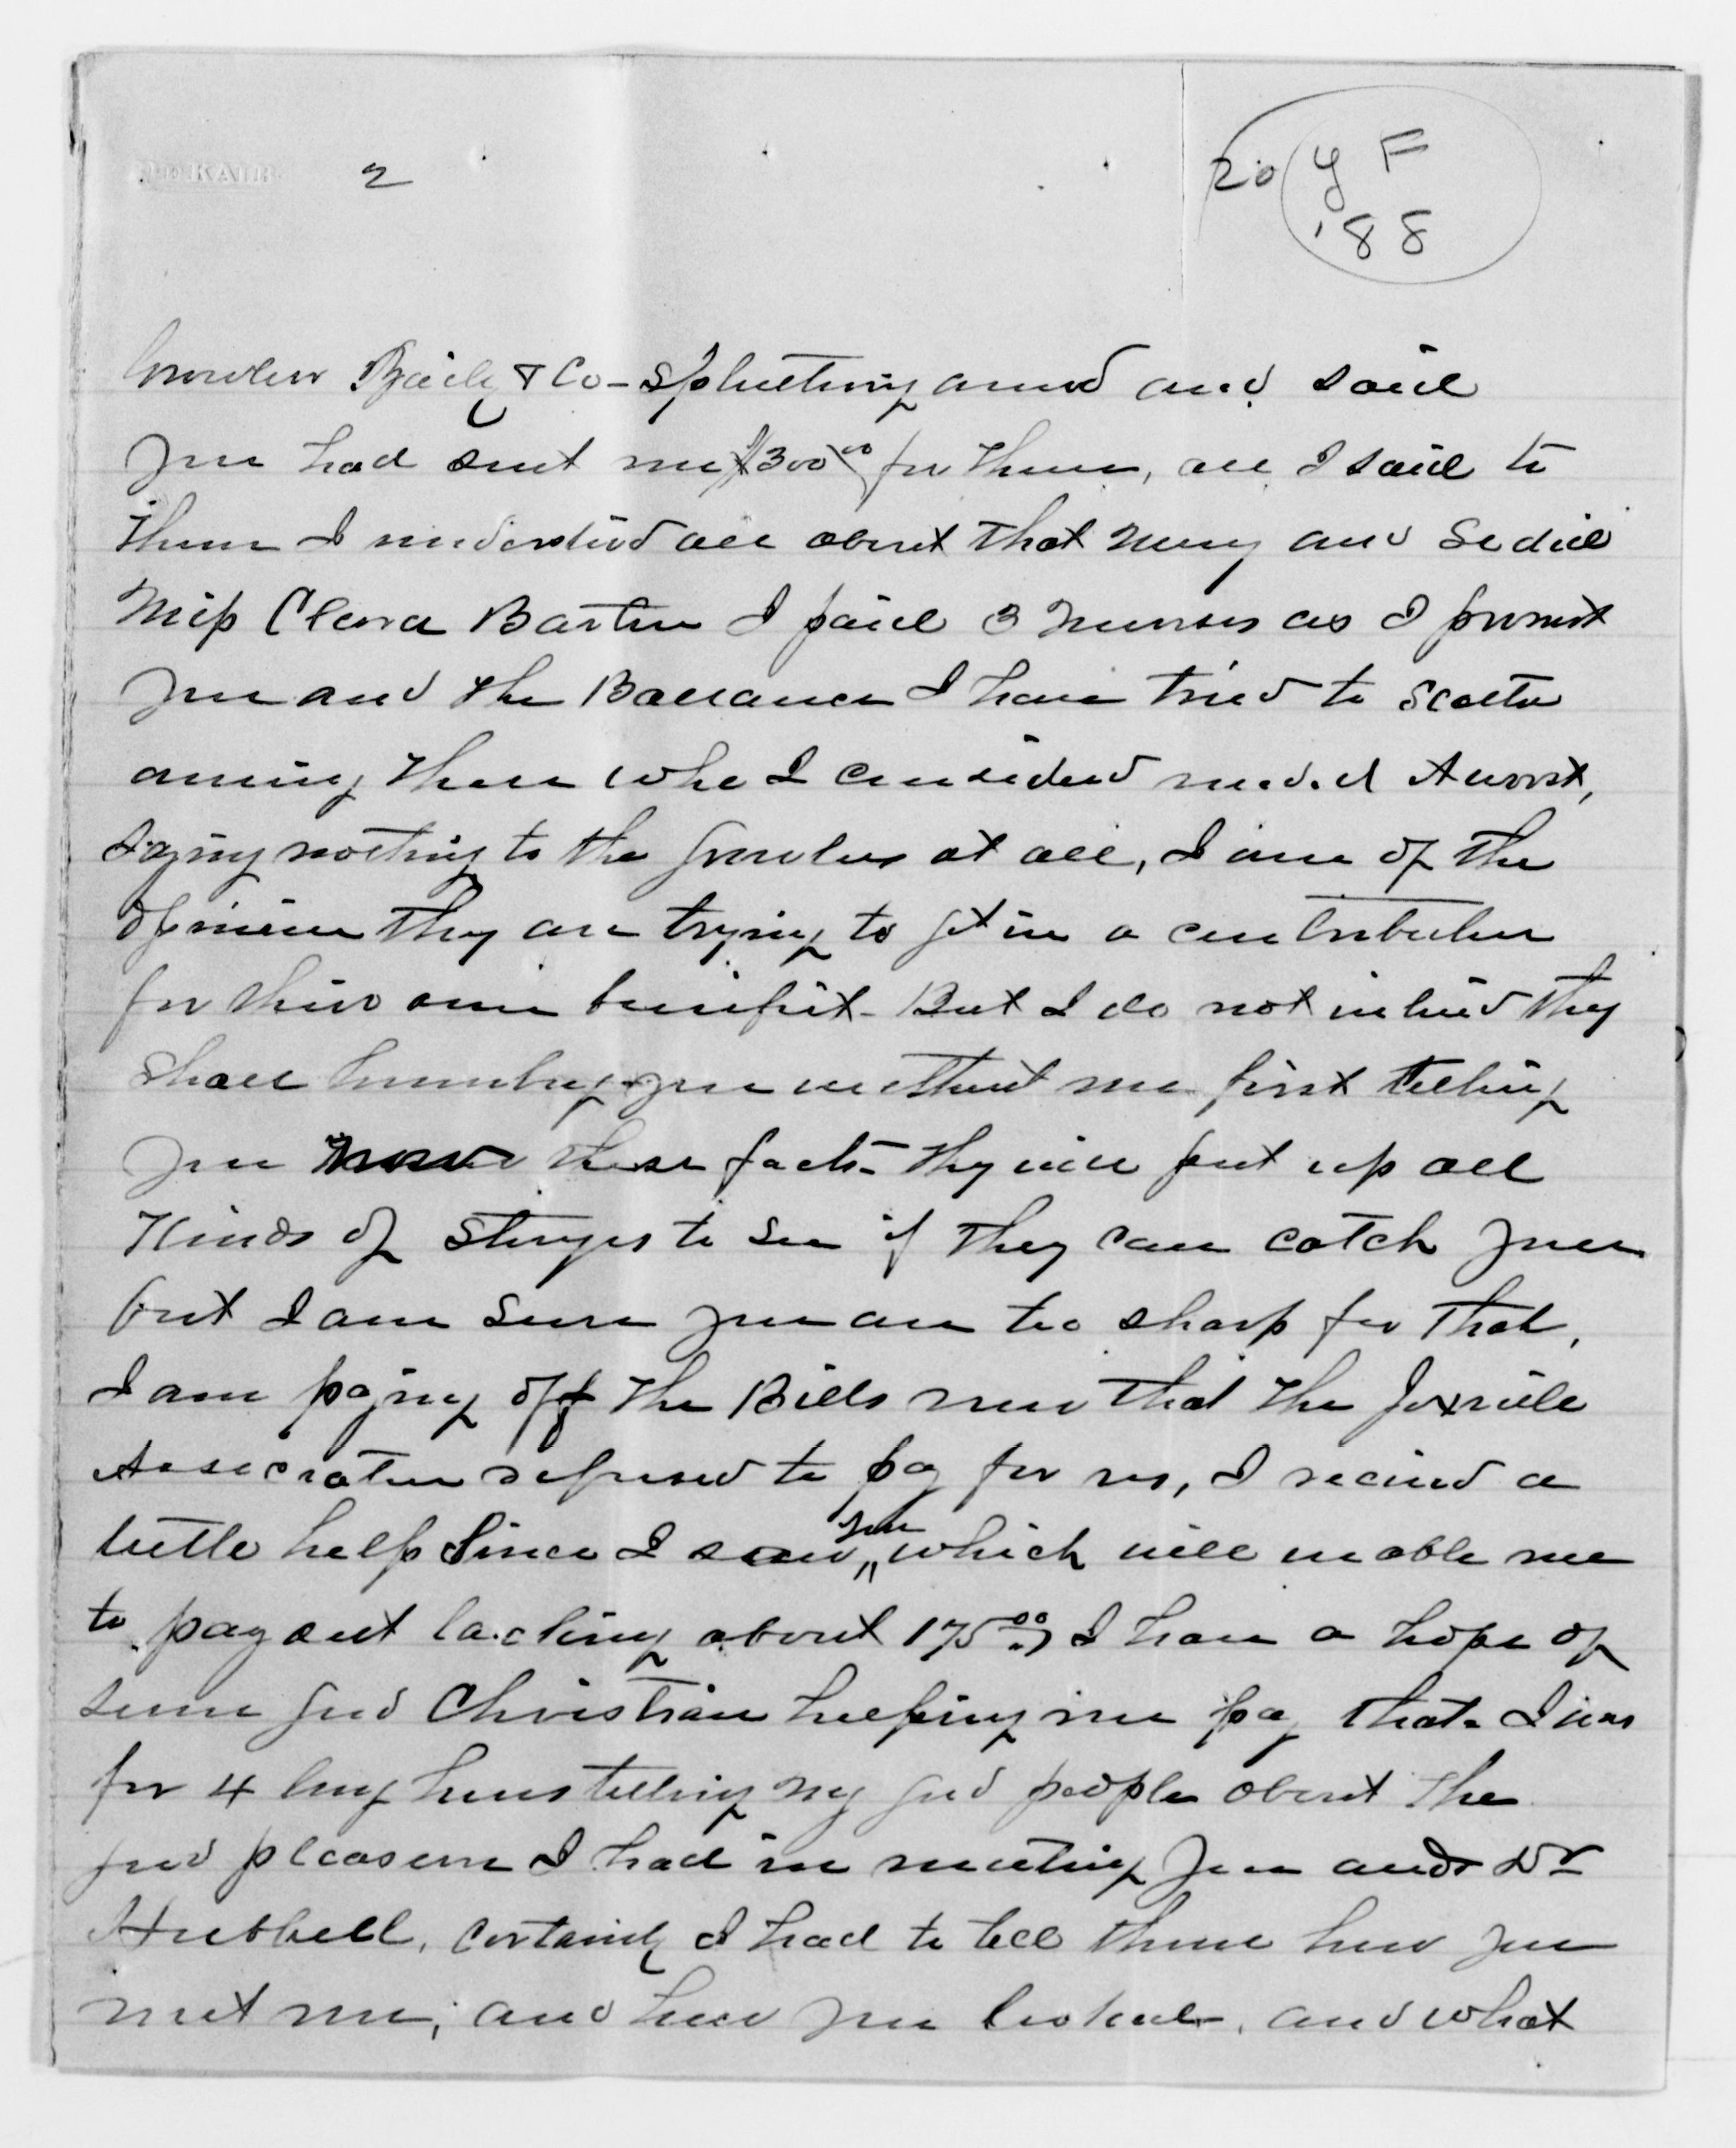 2
20 YF
'88
Growlers Baily & Co - spluttering around and said
you had sent me $300.00 for them, all I said to
them I understood all about that money and so did
Miss Clara Barton I paid 3 nurses as I promist
you and the Ballance I have tried to scatter
among them who I considered needed it worst,
saying nothing to the growlers at all, I am of the
opinion they are trying to get in a contribution
for their own benifit - But I do not intend they
shall humbug you without me first telling
you these facts - they will put up all
Kinds of storyes to see if they can catch you
but I am sure you are too sharp for that.
I am paying off the Bills now that the Jaxville
Association refused to pay for us, I recived a
little help Since I saw you which will enable me
to pay out lacking about 175.00, I have a hope of
some good Christian helping me pay that - I was
for 4 long hours telling my good people about the
good pleasure I had in meeting you and Dr
Hubbell. certainly I had to tell them how you
met me, and how you looked, and what